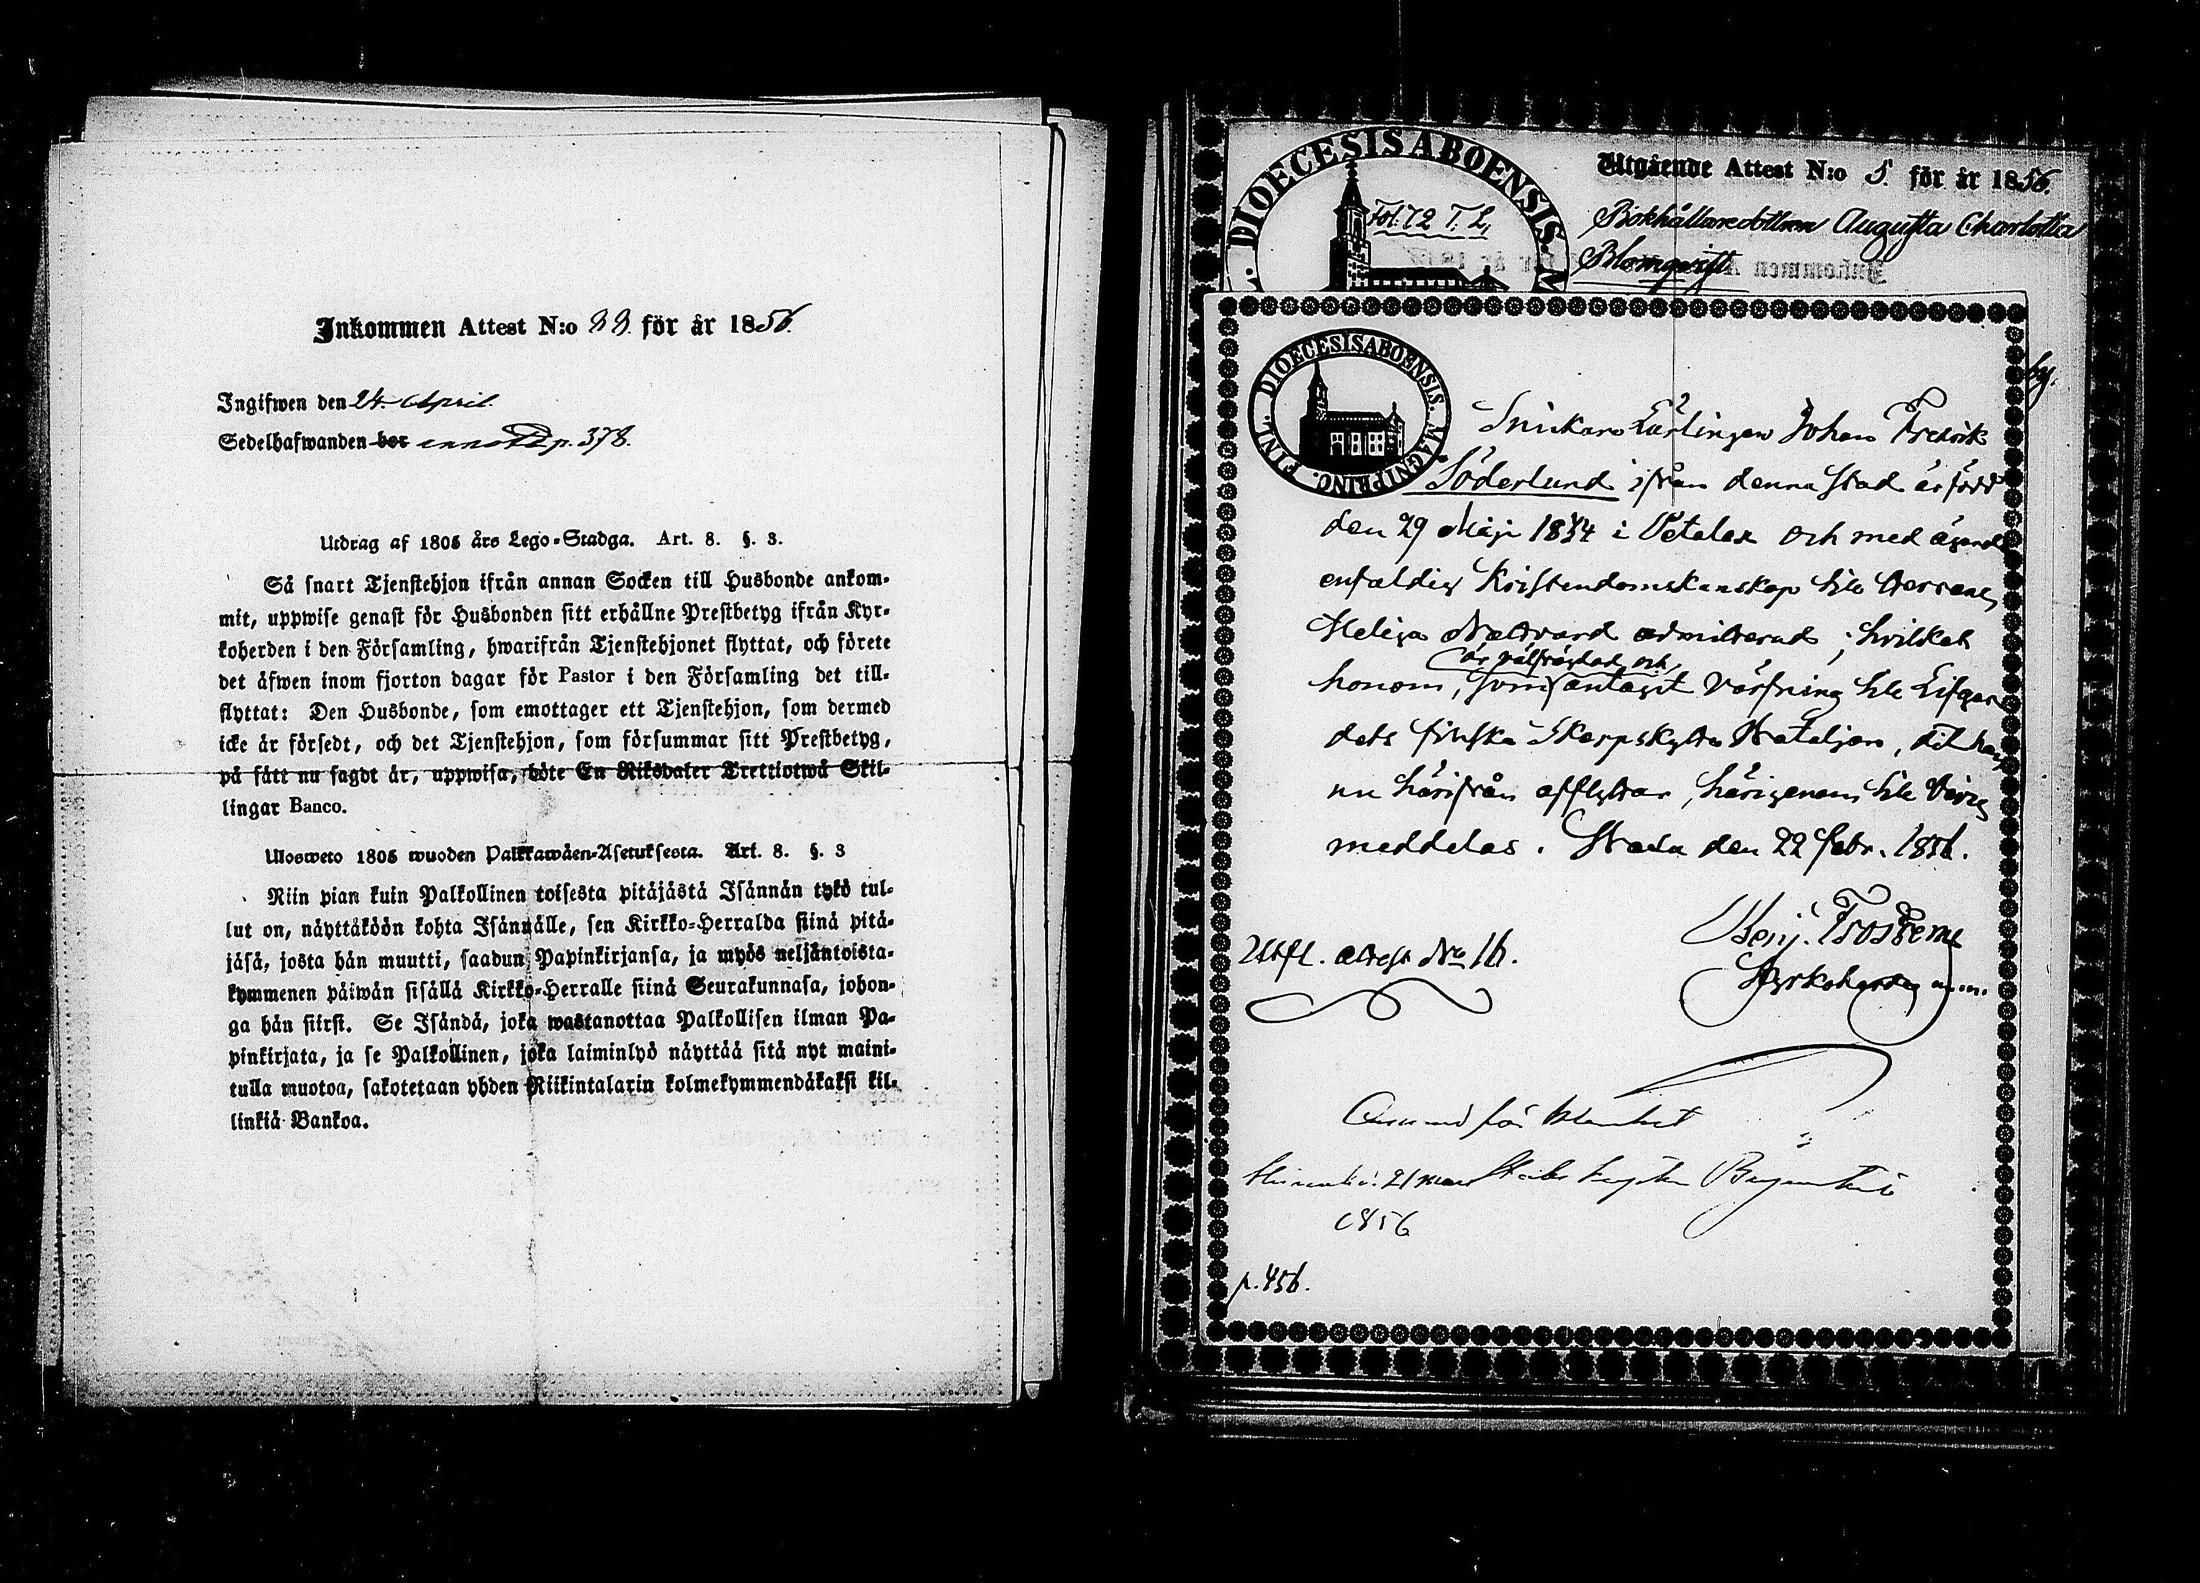 Inkommen Attest N:o 33. för år 1856.
Ingifwen den 24. April.
Sedelhafwanden bor annot. p. 378.
Utdrag af 1805 års Lego-Stadga. Art. 8. §. 3.
Så snart Tjenstehjon ifrån annan Socken till Husbonde ankom-
mit, uppwise genast för Husbonden sitt erhållne Prestbetyg ifrån Kyr-
koherden i den Församling, hwarifrån Tjenstehjonet flyttat, och förete
det äfwen inom fjorton dagar för Pastor i den Församling det till-
flyttat: Den Husbonde, som emottager ett Tjenstehjon, som dermed
icke är försedt, och det Tjenstehjon, som försummar sitt Prestbetyg,
på sätt nu sagdt är, uppwisa, böte En Riksdaler Trettiotwå Skil-
lingar Banco.
Ulosweto 1805 wuoden Palkkawäen-Asetuksesta. Art. 8. §. 3
Niin pian kuin Palkollinen toisesta pitäjästä Isännän tykö tul-
lut on, näyttäköön kohta Isännälle, sen Kirkko-Herralda siinä pitä-
jäsä, josta hän muutti, saadun Papinkirjansa, ja myös neljäntoista-
kymmenen päiwän sisällä Kirkko-Herralle siinä Seurakunnasa, johon-
ga hän siirsi. Se Isändä, joka wastanottaa Palkollisen ilman Pa-
pinkirjata, ja se Palkollinen, joka laiminlyö näyttää sitä nyt maini-
tulla muotoa, sakotetaan yhden Riikintalarin kolmekymmendäkaksi kil-
linkiä Bankoa.
DIOECESIS ABOENSIS. M
Fol. 72 T. L.
Utgående Attest N:o 5. för år 1856.
Bokhållaredottren Augusta Charlotta
Blomqvist
DIOECESIS ABOENSIS. MAGNI PRINC. FINL.
Snickare Lärlingen Johan Fredrik
Söderlund ifrån denna stad är född
den 29 Maji 1834 i Petalax och med ägande
enfaldig Kristendomskunskap till Herrans
Heliga Nattvard admitterad; hvilket
är välfrägdad och
honom, som antagit värfning till Lifgar
dets finska Skarpskytte Bataljon, då han
nu härifrån afflyttar, härigenom till bevis
meddelas. Wasa den 22 febr. 1856.
Benj. Frosterus
Kyrkoherde m.m.
Utfl. attest No 16.
1856
p. 456.